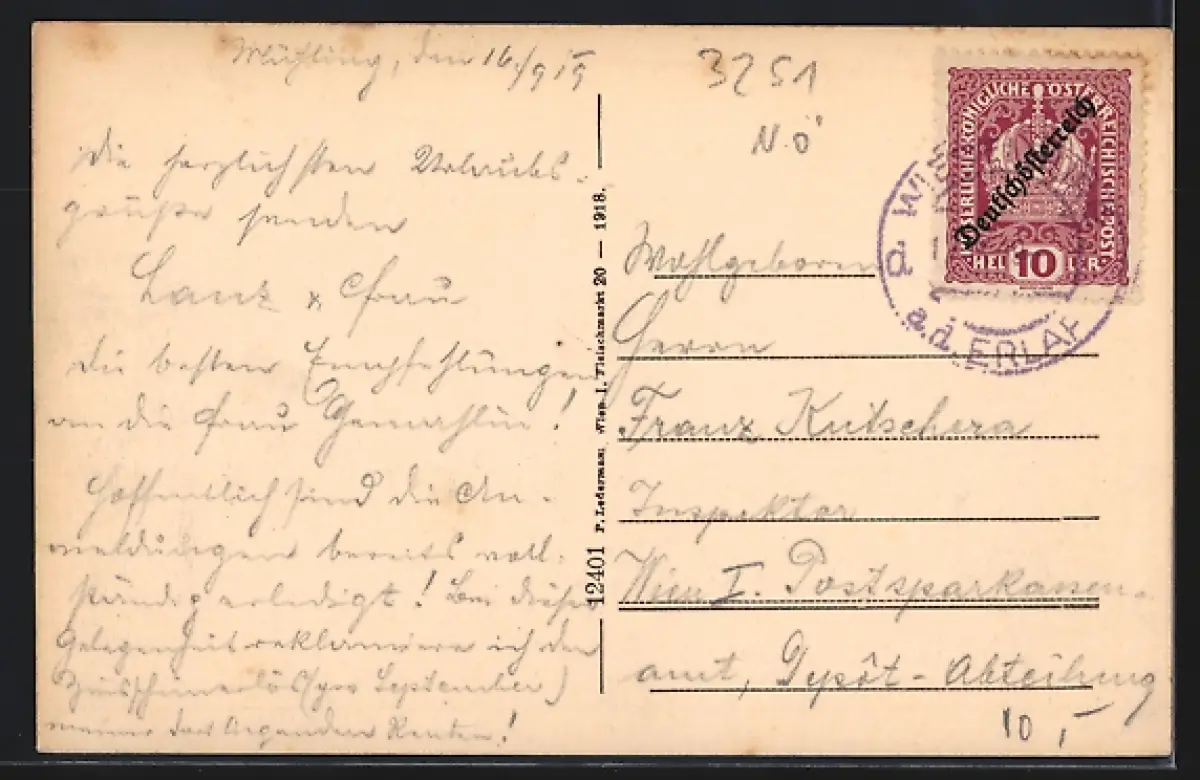 Mühling, den 16./9 19
3251
N.Ö
Die herzlichsten Urlaubs-
grüße senden
Lanz & Frau
Die besten Empfehlungen
an die Frau Gemahlin!
Hoffentlich sind die An-
meldungen bereits voll-
ständig erledigt! Bei dieser
Gelegenheit reklamiere ich den
Zinsschimerlös (pro September)
meiner Renten!
12401 P. Ledermann, Wien I. Fleischmarkt 20 — 1918.
KAISERLICHE KÖNIGLICHE ÖSTERREICHISCHE POST
Deutschösterreich
HELLER
10
a.d. ERLAF
Wohlgeboren
Herrn
Franz Kutschera
Inspektor
Wien I. Postsparkassen-
amt, Depôt-Abteilung
10,-